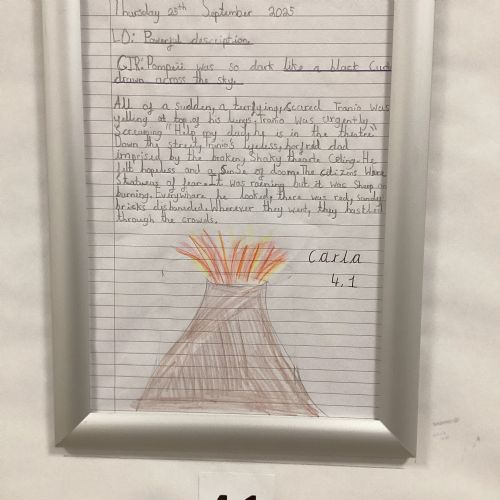 Thursday 25th September 2025
LO: Powerful description
GTR: Pompeii was so dark like a black
drawn across the sky.
All of a sudden, a terrfying, scared Tranio was
yelling at top of his lungs. Tranio was urgently
screaming "Help my dad, he is in the theatre"
Down the street, lyeless, dad
by the broken, shaky thearte Celing. He
felt hopeless and a sense of doom. The citizens Were
Statues of fear. It was raening but it was
burning. Everywhere he looked, there was red, sandy
bricks disbanded. Wherever they went, they hustled
through the crowds.
Carla
4.1